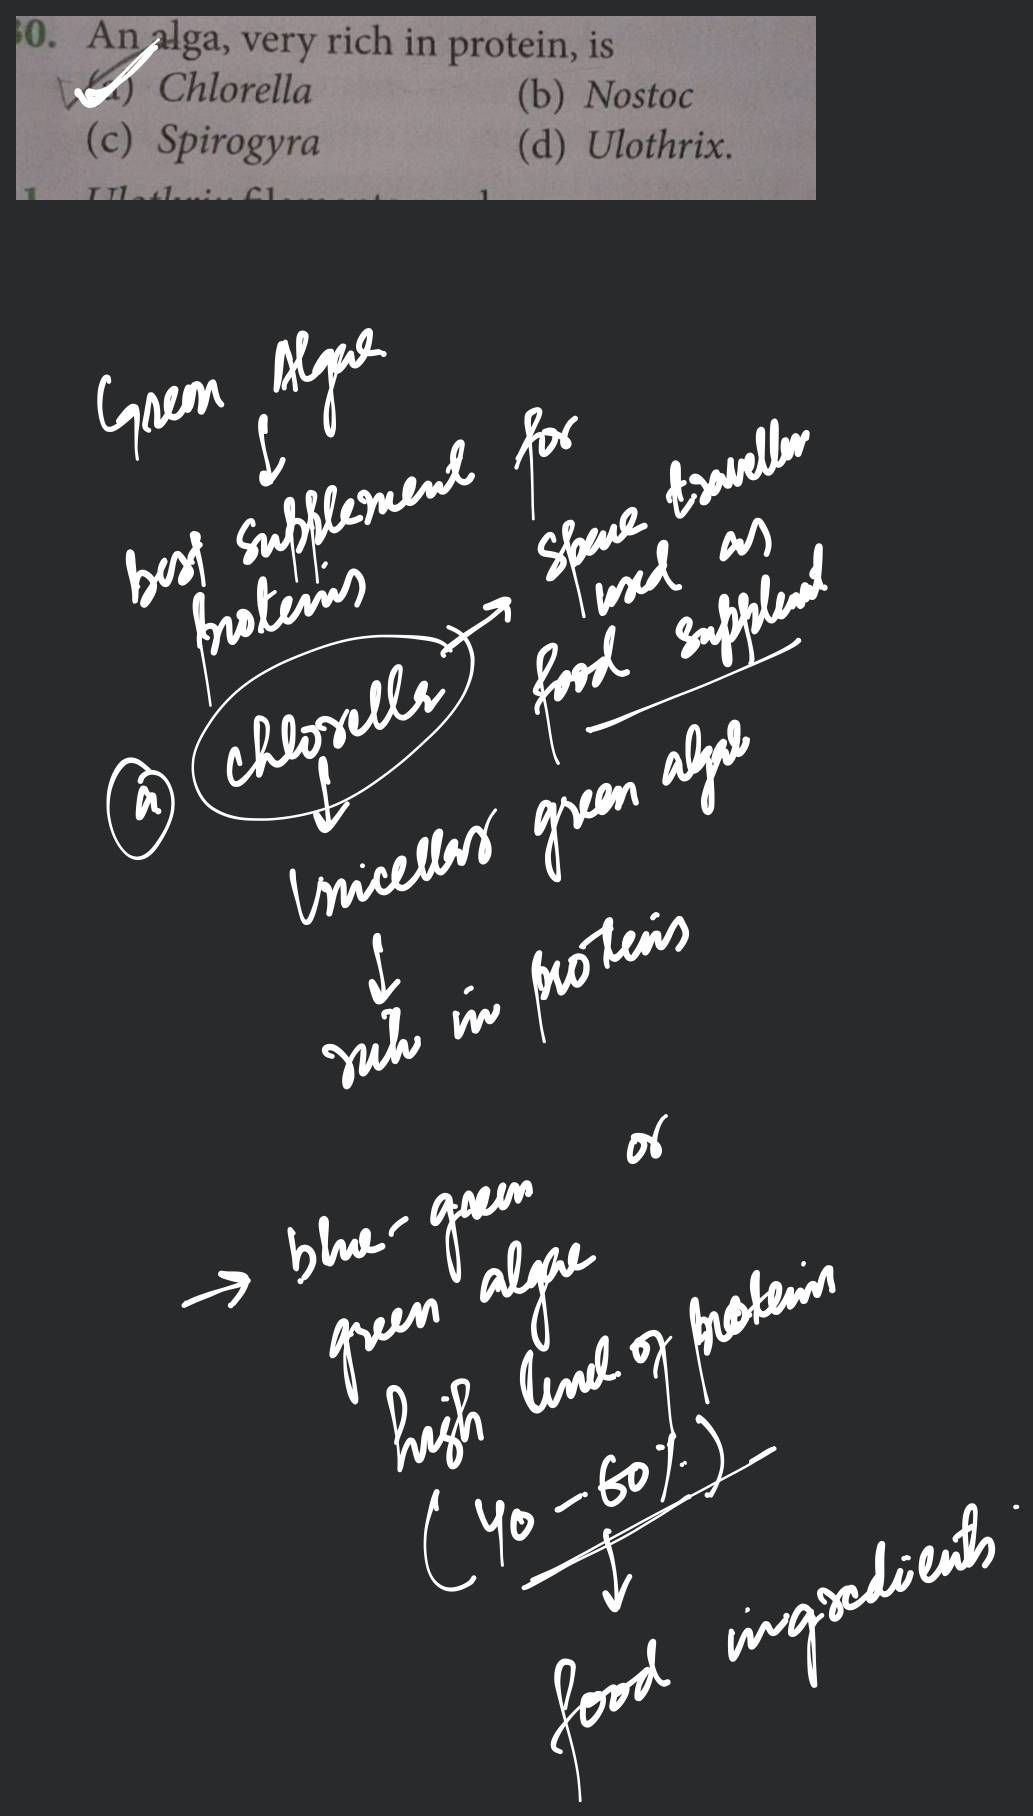 30. An alga, very rich in protein, is
(a) Chlorella (b) Nostoc
(c) Spirogyra (d) Ulothrix.
Green Algae
↓
best supplement for
proteins
chlorella → space traveller
used as
food supplement
(a)
↓
Unicellar green algae
↓
rich in proteins
→ blue-green or
green algae
high level of protein
(40 - 60%)
↓
food ingredients